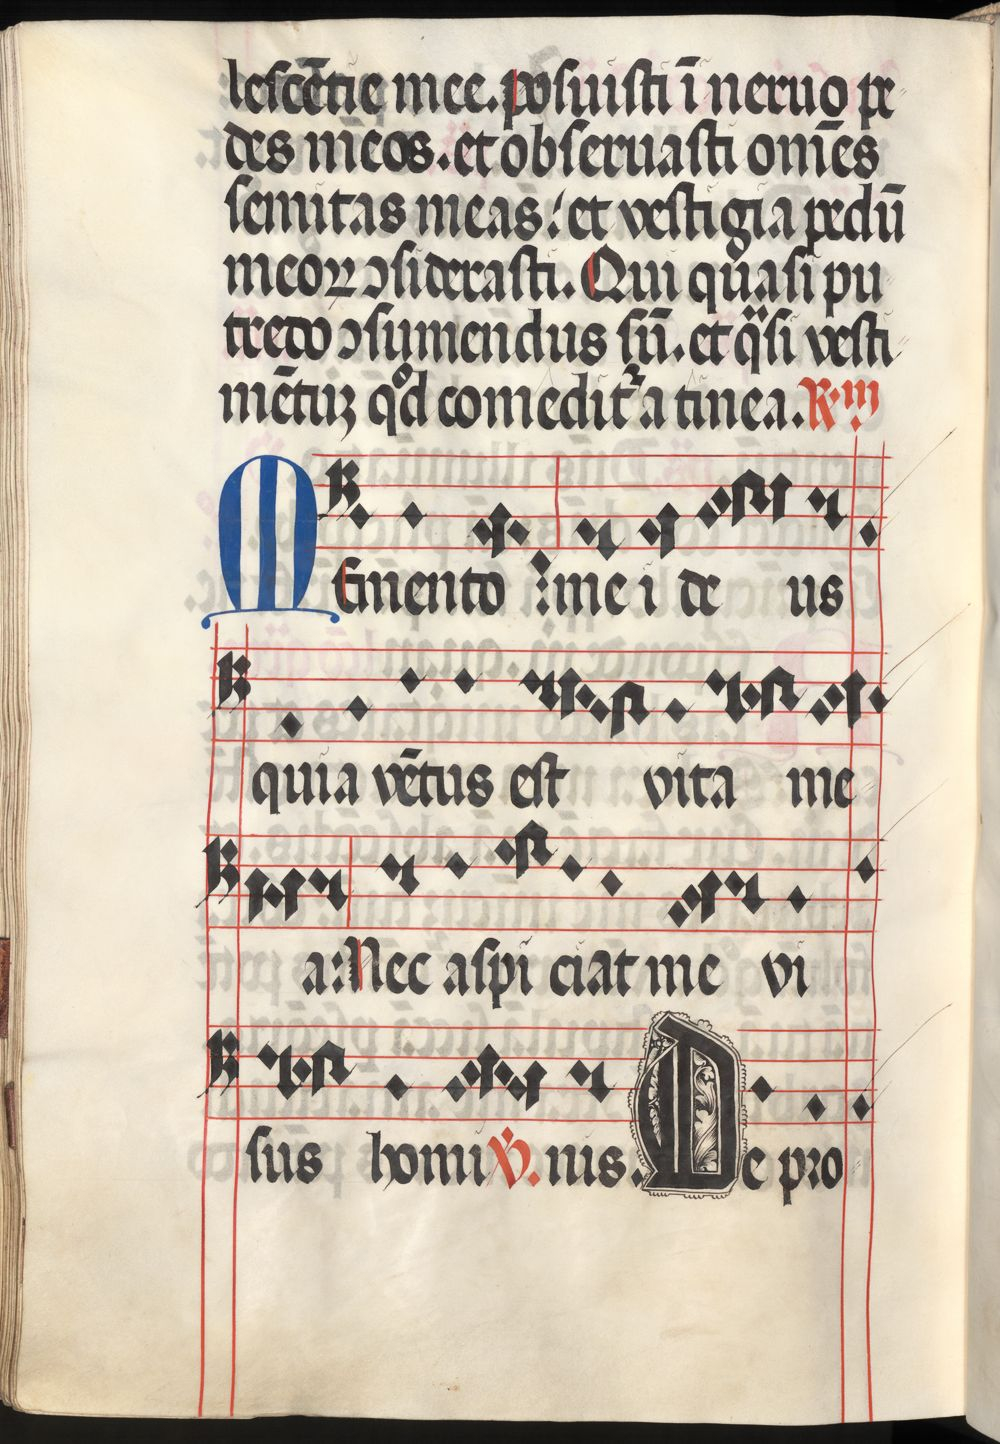 lescẽtie mee. posuisti ĩ neruo pe
des meos. et obseruasti om̃es
semitas meas: et vestigia pedũ
meoꝝ ↄsiderasti. Qui quasi pu
tredo ↄsumendus sũ. et q̃si vesti
mẽtuꝫ qd comedit᷑ a tinea. R. iii
Memento mei deus
quia vẽtus est vita me
a: Nec aspiciat me vi
sus homi V̇. nis. De pro